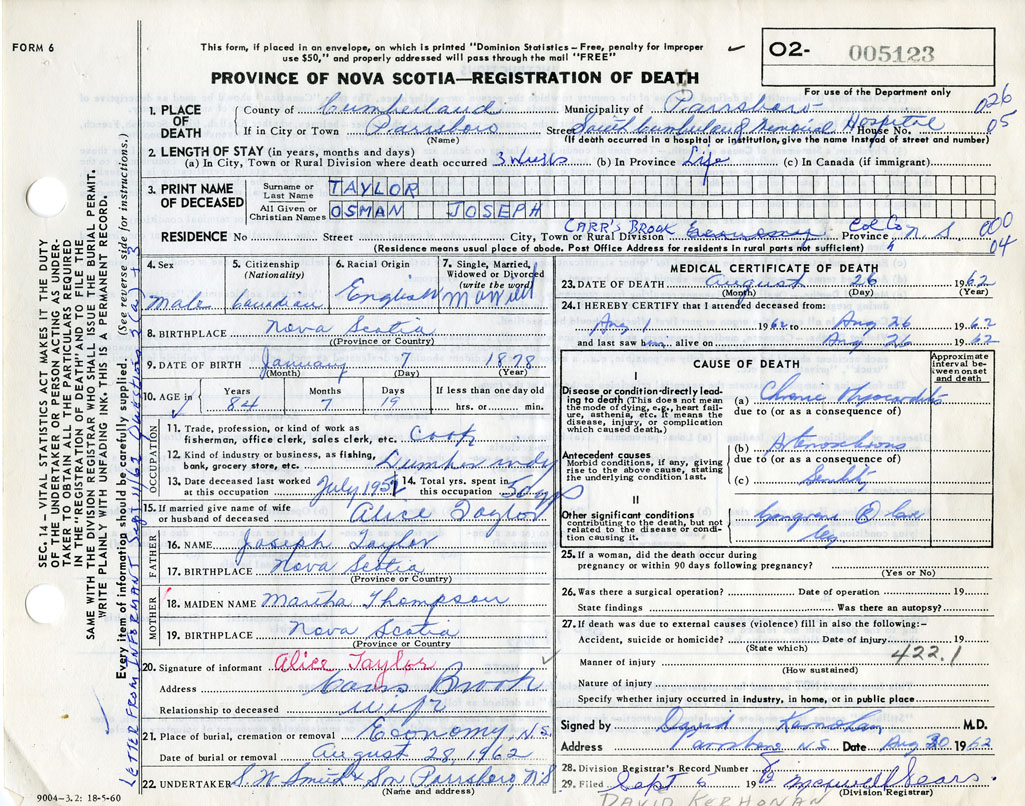 FORM 6
This form, if placed in an envelope, on which is printed "Dominion Statistics – Free, penalty for improper
use $50," and properly addressed will pass through the mail "FREE"
PROVINCE OF NOVA SCOTIA—REGISTRATION OF DEATH
O2- 005123
For use of the Department only
026
05
1. PLACE OF DEATH
County of Cumberland Municipality of Parrsboro
If in City or Town Parrsboro Street South Cumberland Memorial Hospital House No.
(Name) (If death occurred in a hospital or institution, give the name instead of street and number)
2. LENGTH OF STAY (in years, months and days)
(a) In City, Town or Rural Division where death occurred 3 (b) In Province Life (c) In Canada (if immigrant)
3. PRINT NAME OF DECEASED
Surname or Last Name TAYLOR
All Given or Christian Names OSMAN JOSEPH
RESIDENCE No Street City, Town or Rural Division CARR'S BROOK Economy Col Co Province N.S. 000
04
(Residence means usual place of abode. Post Office Address for residents in rural parts not sufficient)
4. Sex Male
5. Citizenship (Nationality) Canadian
6. Racial Origin English
7. Single, Married, Widowed or Divorced (write the word) Married
8. BIRTHPLACE Nova Scotia
(Province or Country)
9. DATE OF BIRTH January 7 1878
(Month) (Day) (Year)
10. AGE in Years 84 Months 7 Days 19 If less than one day old hrs. or min.
OCCUPATION
11. Trade, profession, or kind of work as
fisherman, office clerk, sales clerk, etc. Cook
12. Kind of industry or business, as fishing,
bank, grocery store, etc. Lumber
13. Date deceased last worked at this occupation July 1952
14. Total yrs. spent in this occupation 50 yrs
15. If married give name of wife or husband of deceased Alice Taylor
FATHER
16. NAME Joseph Taylor
17. BIRTHPLACE Nova Scotia
(Province or Country)
MOTHER
18. MAIDEN NAME Martha Thompson
19. BIRTHPLACE Nova Scotia
(Province or Country)
20. Signature of informant Alice Taylor
Address Carrs Brook
Relationship to deceased wife
21. Place of burial, cremation or removal Economy, N.S.
Date of burial or removal August 28, 1962
22. UNDERTAKER S.W. Smith & Son Parrsboro, N.S.
(Name and address)
9004-3.2: 18-5-60
MEDICAL CERTIFICATE OF DEATH
23. DATE OF DEATH August 26 1962
(Month) (Day) (Year)
24. I HEREBY CERTIFY that I attended deceased from:
Aug 1 1962 to Aug 26 1962
and last saw him alive on Aug 26 1962
CAUSE OF DEATH
Approximate interval between onset and death
I
Disease or condition directly leading to death (This does not mean
the mode of dying, e.g., heart failure, asthenia, etc. It means the
disease, injury, or complication which caused death.)
(a) Chronic Myocarditis
due to (or as a consequence of)
Antecedent causes
Morbid conditions, if any, giving
rise to the above cause, stating
the underlying condition last.
(b)
due to (or as a consequence of)
(c) Senility
II
Other significant conditions
contributing to the death, but not
related to the disease or condition causing it.
Gangrene Leg
25. If a woman, did the death occur during
pregnancy or within 90 days following pregnancy?
(Yes or No)
26. Was there a surgical operation? Date of operation 19
State findings Was there an autopsy?
27. If death was due to external causes (violence) fill in also the following:-
Accident, suicide or homicide? Date of injury 19
(State which)
422.1
Manner of injury
(How sustained)
Nature of injury
Specify whether injury occurred in industry, in home, or in public place
Signed by David M.D.
Address Parrsboro N.S. Date Aug 30 1962
28. Division Registrar's Record Number 8
29. Filed Sept 5 1962 Maxwell Sears.
(Division Registrar)
DAVID KERHONAN
SEC. 14 – VITAL STATISTICS ACT MAKES IT THE DUTY
OF THE UNDERTAKER OR PERSON ACTING AS UNDER-
TAKER TO OBTAIN ALL THE PARTICULARS REQUIRED
IN THE "REGISTRATION OF DEATH" AND TO FILE THE
SAME WITH THE DIVISION REGISTRAR WHO SHALL ISSUE THE BURIAL PERMIT.
WRITE PLAINLY WITH UNFADING INK. THIS IS A PERMANENT RECORD.
Every item of information should be carefully supplied. (See reverse side for instructions.)
LETTER FROM INFORMANT Sept 11/62 Question 2(a) + 3